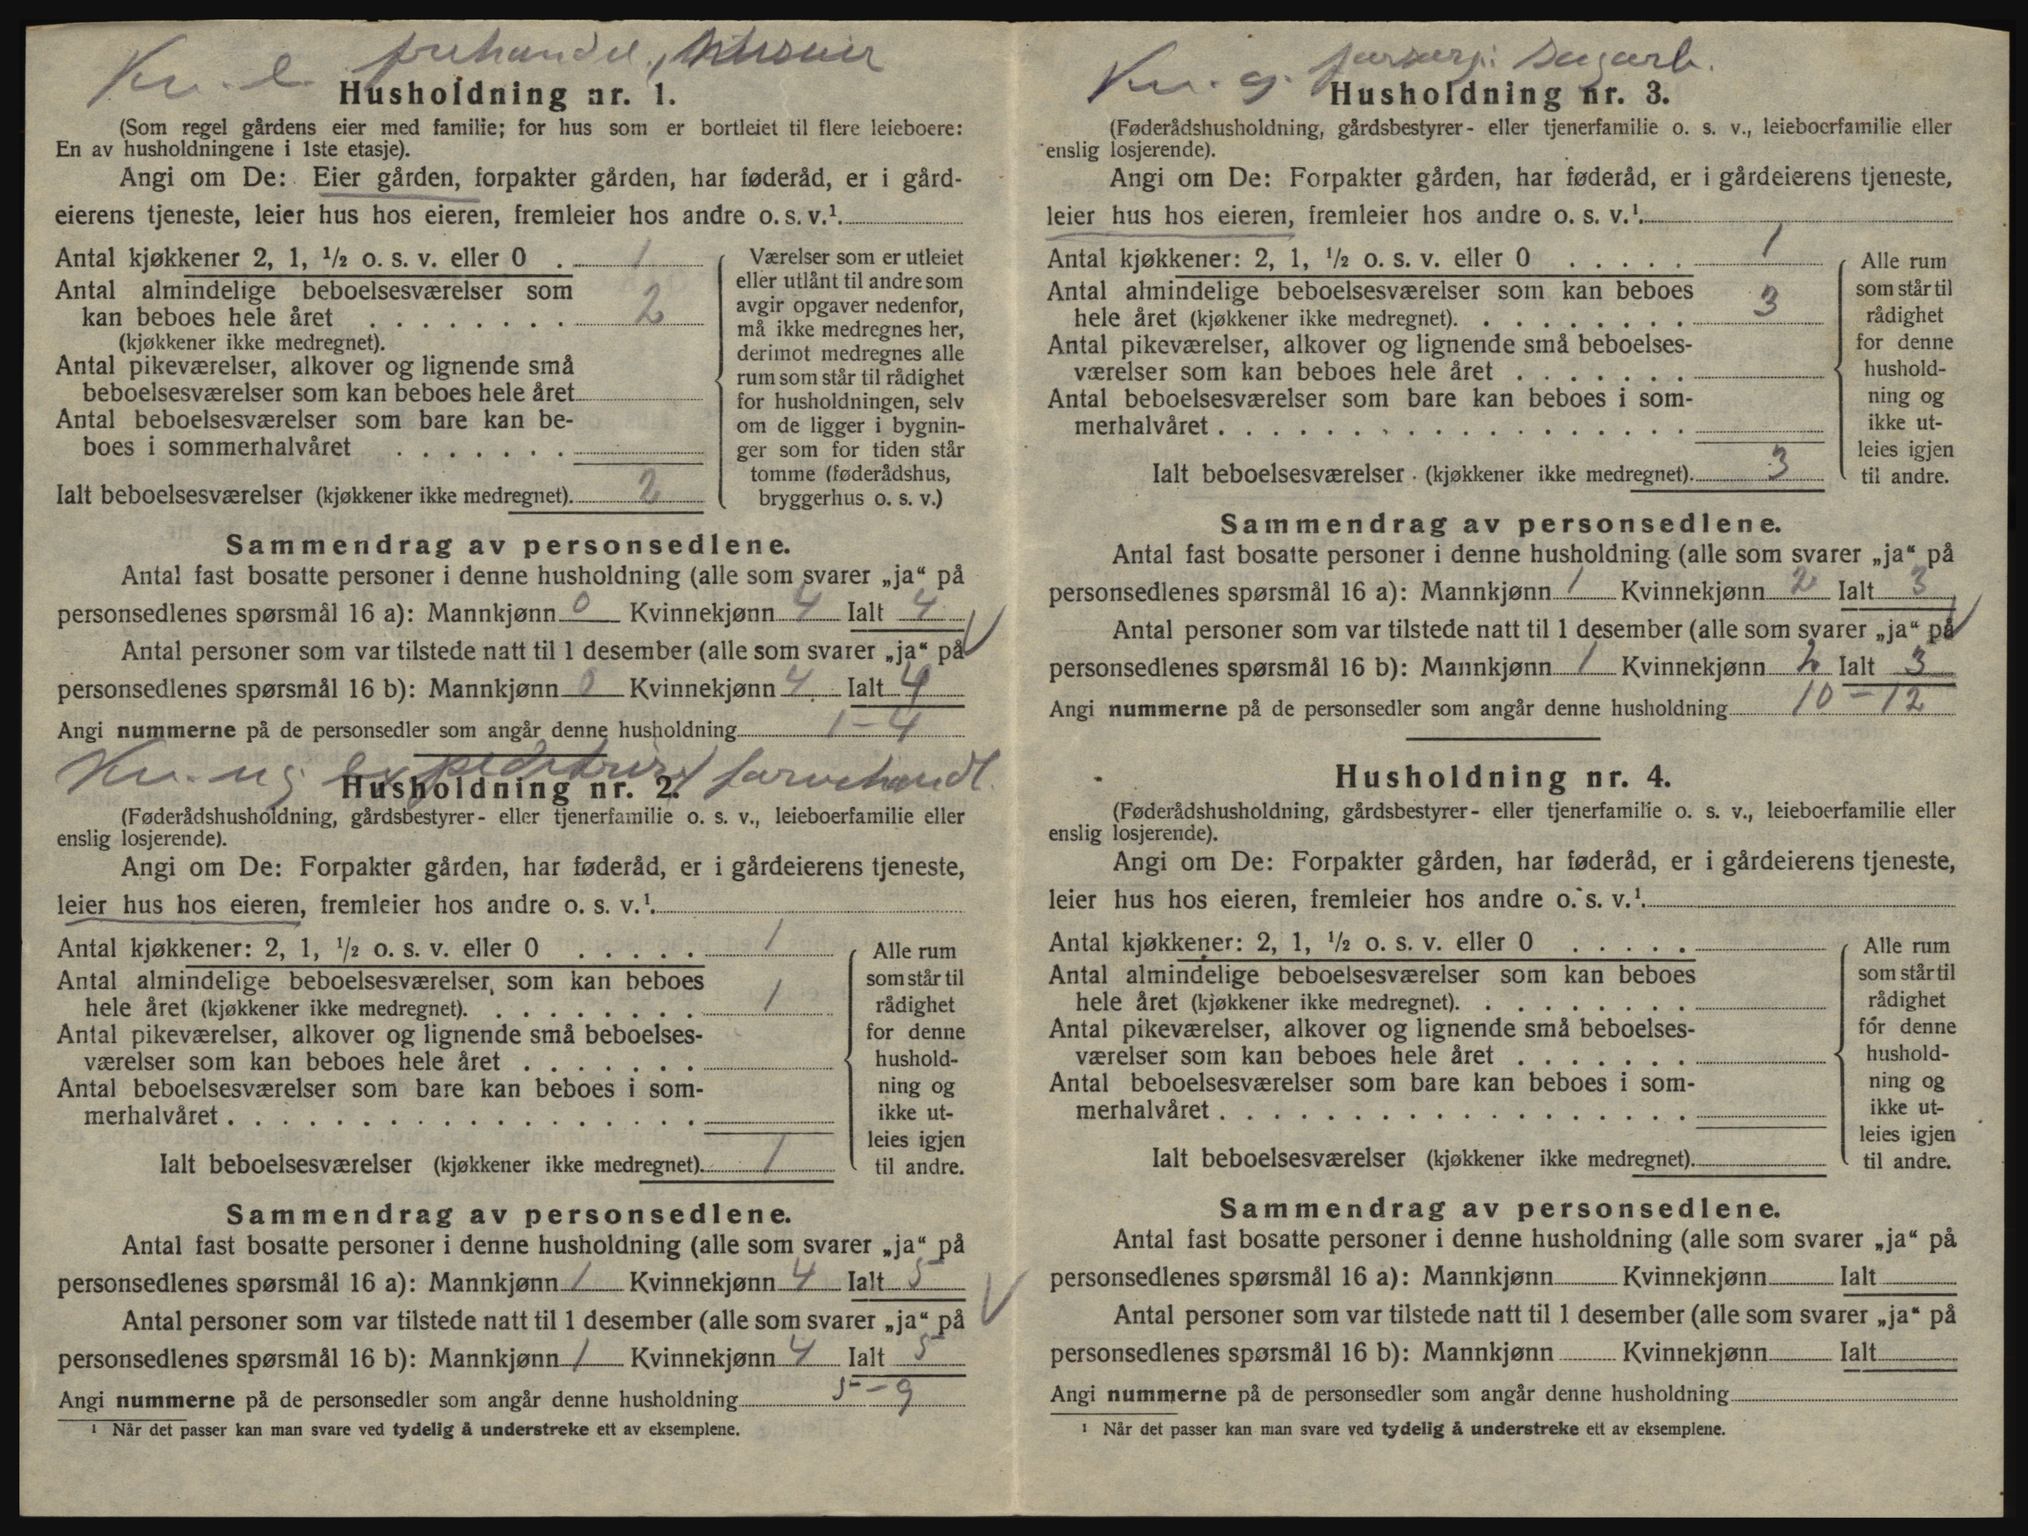 Husholdning nr. 1.
(Som regel gårdens eier med familie; for hus som er bortleiet til flere leieboere:
En av husholdningene i 1ste etasje).
Angi om De: Eier gården, forpakter gården, har føderåd, er i gård-
eierens tjeneste, leier hus hos eieren, fremleier hos andre o. s. v.¹.
Antal kjøkkener 2, 1, ½ o. s. v. eller 0 . 1
Antal almindelige beboelsesværelser som
kan beboes hele året . . . . . . . . 2
(kjøkkener ikke medregnet).
Antal pikeværelser, alkover og lignende små
beboelsesværelser som kan beboes hele året
Antal beboelsesværelser som bare kan be-
boes i sommerhalvåret . . . . . . .
Ialt beboelsesværelser (kjøkkener ikke medregnet). 2
Værelser som er utleiet
eller utlånt til andre som
avgir opgaver nedenfor,
må ikke medregnes her,
derimot medregnes alle
rum som står til rådighet
for husholdningen, selv
om de ligger i bygnin-
ger som for tiden står
tomme (føderådshus,
bryggerhus o. s. v.)
Sammendrag av personsedlene.
Antal fast bosatte personer i denne husholdning (alle som svarer „ja“ på
personsedlenes spørsmål 16 a): Mannkjønn 0 Kvinnekjønn 4 Ialt 4
Antal personer som var tilstede natt til 1 desember (alle som svarer „ja“ på
personsedlenes spørsmål 16 b): Mannkjønn 0 Kvinnekjønn 4 Ialt 4
Angi nummerne på de personsedler som angår denne husholdning 1-4
Husholdning nr. 2.
(Føderådshusholdning, gårdsbestyrer- eller tjenerfamilie o. s. v., leieboerfamilie eller
enslig losjerende).
Angi om De: Forpakter gården, har føderåd, er i gårdeierens tjeneste,
leier hus hos eieren, fremleier hos andre o. s. v.¹.
Antal kjøkkener: 2, 1, ½ o. s. v. eller 0 . . . . . 1
Antal almindelige beboelsesværelser, som kan beboes
hele året (kjøkkener ikke medregnet). . . . . . . . . 1
Antal pikeværelser, alkover og lignende små beboelses-
værelser som kan beboes hele året . . . . . . .
Antal beboelsesværelser som bare kan beboes i som-
merhalvåret . . . . . . . . . . . . . . . . . .
Ialt beboelsesværelser (kjøkkener ikke medregnet). 1
Alle rum
som står til
rådighet
for denne
hushold-
ning og
ikke ut-
leies igjen
til andre.
Sammendrag av personsedlene.
Antal fast bosatte personer i denne husholdning (alle som svarer „ja“ på
personsedlenes spørsmål 16 a): Mannkjønn 1 Kvinnekjønn 4 Ialt 5
Antal personer som var tilstede natt til 1 desember (alle som svarer „ja“ på
personsedlenes spørsmål 16 b): Mannkjønn 1 Kvinnekjønn 4 Ialt 5
Angi nummerne på de personsedler som angår denne husholdning 5-9
¹ Når det passer kan man svare ved tydelig å understreke ett av eksemplene.
Husholdning nr. 3.
(Føderådshusholdning, gårdsbestyrer- eller tjenerfamilie o. s. v., leieboerfamilie eller
enslig losjerende).
Angi om De: Forpakter gården, har føderåd, er i gårdeierens tjeneste,
leier hus hos eieren, fremleier hos andre o. s. v.¹.
Antal kjøkkener: 2, 1, ½ o. s. v. eller 0 . . . . . 1
Antal almindelige beboelsesværelser som kan beboes
hele året (kjøkkener ikke medregnet). . . . . . . . . 3
Antal pikeværelser, alkover og lignende små beboelses-
værelser som kan beboes hele året . . . . . . .
Antal beboelsesværelser som bare kan beboes i som-
merhalvåret . . . . . . . . . . . . . . . . . .
Ialt beboelsesværelser (kjøkkener ikke medregnet). 3
Alle rum
som står til
rådighet
for denne
hushold-
ning og
ikke ut-
leies igjen
til andre.
Sammendrag av personsedlene.
Antal fast bosatte personer i denne husholdning (alle som svarer „ja“ på
personsedlenes spørsmål 16 a): Mannkjønn 1 Kvinnekjønn 2 Ialt 3
Antal personer som var tilstede natt til 1 desember (alle som svarer „ja“ på
personsedlenes spørsmål 16 b): Mannkjønn 1 Kvinnekjønn 2 Ialt 3
Angi nummerne på de personsedler som angår denne husholdning 10-12
Husholdning nr. 4.
(Føderådshusholdning, gårdsbestyrer- eller tjenerfamilie o. s. v., leieboerfamilie eller
enslig losjerende).
Angi om De: Forpakter gården, har føderåd, er i gårdeierens tjeneste,
leier hus hos eieren, fremleier hos andre o. s. v.¹.
Antal kjøkkener: 2, 1, ½ o. s. v. eller 0 . . . . .
Antal almindelige beboelsesværelser som kan beboes
hele året (kjøkkener ikke medregnet). . . . . . . . .
Antal pikeværelser, alkover og lignende små beboelses-
værelser som kan beboes hele året . . . . . . .
Antal beboelsesværelser som bare kan beboes i som-
merhalvåret . . . . . . . . . . . . . . . . . .
Ialt beboelsesværelser (kjøkkener ikke medregnet).
Alle rum
som står til
rådighet
for denne
hushold-
ning og
ikke ut-
leies igjen
til andre.
Sammendrag av personsedlene.
Antal fast bosatte personer i denne husholdning (alle som svarer „ja“ på
personsedlenes spørsmål 16 a): Mannkjønn Kvinnekjønn Ialt
Antal personer som var tilstede natt til 1 desember (alle som svarer „ja“ på
personsedlenes spørsmål 16 b): Mannkjønn Kvinnekjønn Ialt
Angi nummerne på de personsedler som angår denne husholdning
¹ Når det passer kan man svare ved tydelig å understreke ett av eksemplene.